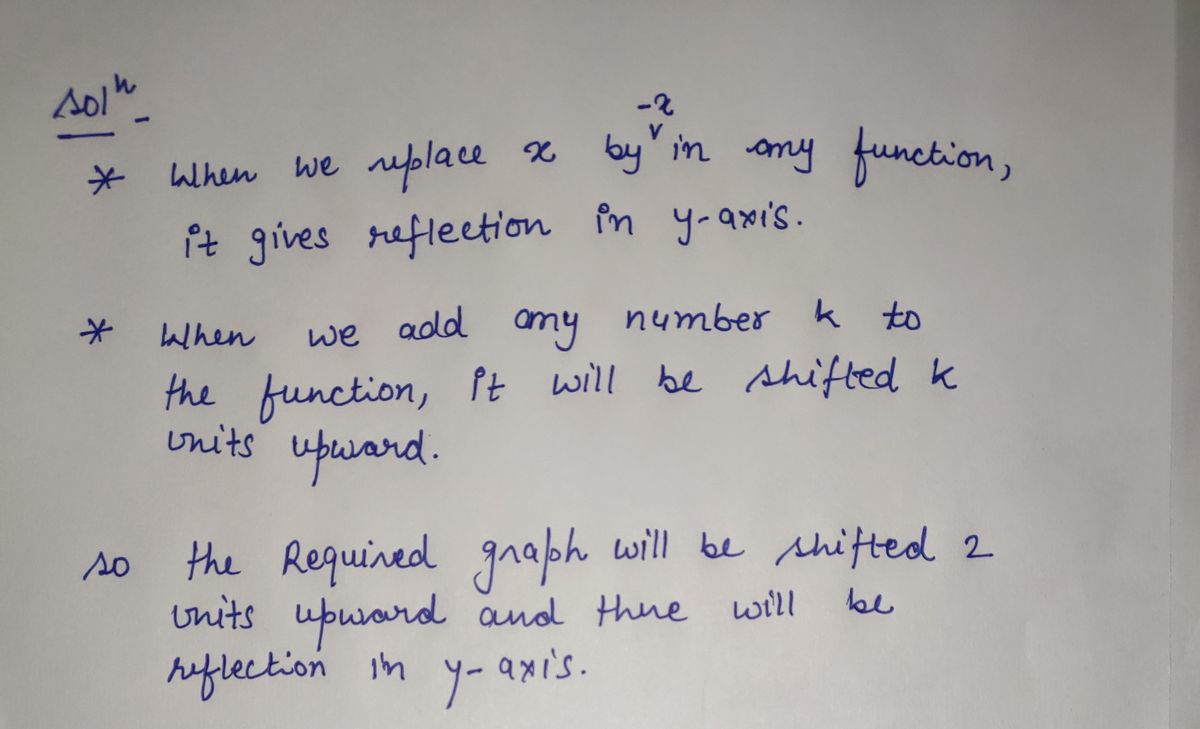 Solⁿ -
* When we replace x by -x in any function,
it gives reflection in y-axis.
* When we add any number k to
the function, it will be shifted k
units upward.
so the Required graph will be shifted 2
units upward and there will be
reflection in y-axis.